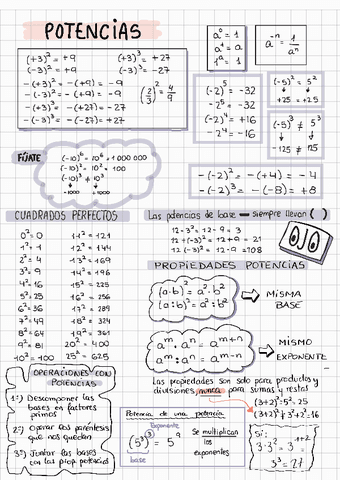 POTENCIAS
(+3)² = +9
(+3)³ = +27
(-3)² = +9
(-3)³ = -27
-(+3)² = -(+9) = -9
-(-3)² = -(+9) = -9
-(+3)³ = -(+27) = -27
-(-3)³ = -(-27) = +27
(2/3)² = 4/9
a⁰ = 1
a¹ = a
1ⁿ = 1
a⁻ⁿ = 1/aⁿ
(-2)⁵ = -32
-2⁵ = -32
(-2)⁴ = +16
-2⁴ = -16
(-5)² = 5²
+25 = +25
(-5)³ ≠ 5³
-125 ≠ 125
-(-2)² = -(+4) = -4
-(-2)³ = -(-8) = +8
FÍJATE
(-10)⁶ = 10⁶ = 1 000 000
(-10)² = 10² = 100
(-10)³ ≠ 10³
-1000 ≠ 1000
CUADRADOS PERFECTOS
0² = 0
11² = 121
1² = 1
12² = 144
2² = 4
13² = 169
3² = 9
14² = 196
4² = 16
15² = 225
5² = 25
16² = 256
6² = 36
17² = 289
7² = 49
18² = 324
8² = 64
19² = 361
9² = 81
20² = 400
10² = 100
25² = 625
Las potencias de base - siempre llevan ( )
12 - 3² = 12 - 9 = 3
12 + (-3)² = 12 + 9 = 21
12 · (-3)² = 12 · 9 = 108
OJO
PROPIEDADES POTENCIAS
(a·b)² = a²·b²
(a:b)² = a²:b²
MISMA
BASE
aᵐ · aⁿ = aᵐ⁺ⁿ
aᵐ : aⁿ = aᵐ⁻ⁿ
MISMO
EXPONENTE
Las propiedades son solo para producto y
divisiones nunca para sumas y resta!
(3+2)² = 5² = 25
(3+2)² ≠ 3²+2² = 16
OPERACIONES CON
POTENCIAS
1º) Descomponer las
bases en factores
primos
2º) Operar los paréntesis
que nos quedan
3º) Juntar las bases
con las prop. potencias
Potencia de una potencia
Exponente
(5³)³ = 5⁹
base
Se multiplican
los
exponentes
Si:
3·3² = 3¹⁺²
3³ = 27